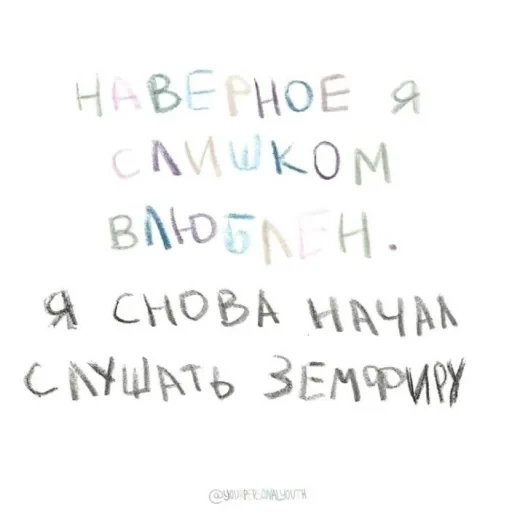 НАВЕРНОЕ Я
СЛИШКОМ
ВЛЮБЛЕН.
Я СНОВА НАЧАЛ
СЛУШАТЬ ЗЕМФИРУ
@YOURPERSONALYOUTH